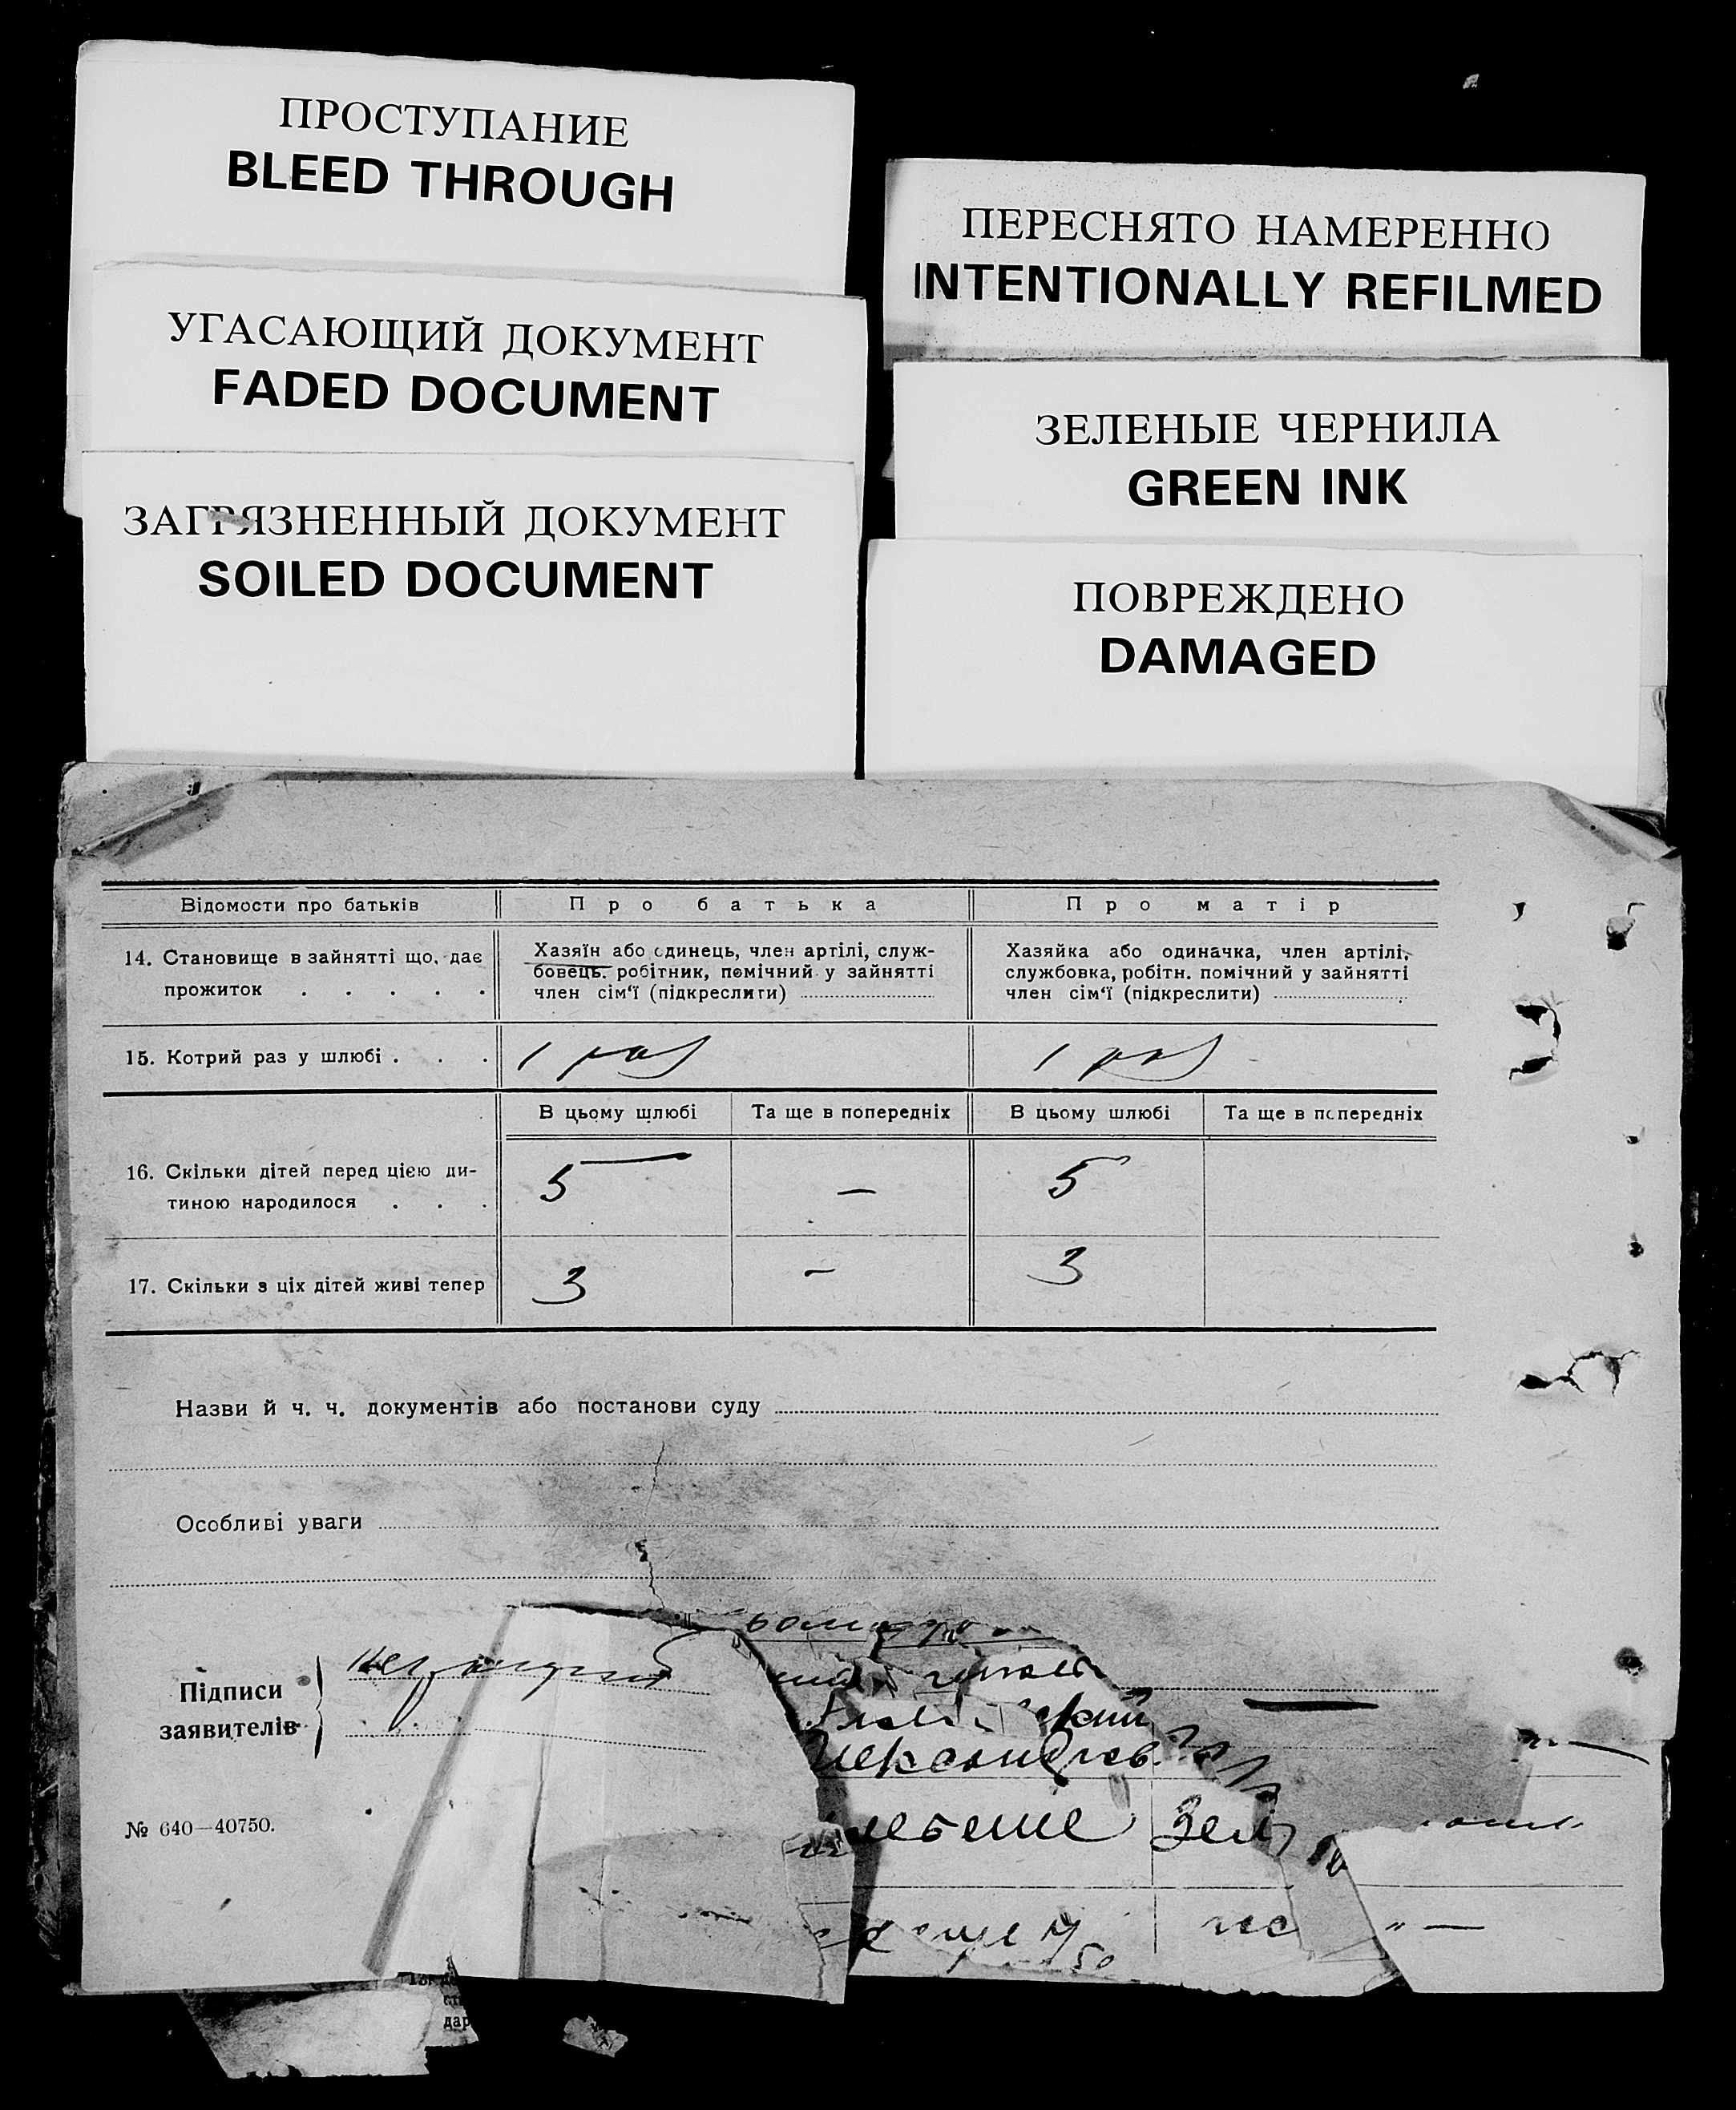 ПРОСТУПАНИЕ
BLEED THROUGH
УГАСАЮЩИЙ ДОКУМЕНТ
FADED DOCUMENT
ЗАГРЯЗНЕННЫЙ ДОКУМЕНТ
SOILED DOCUMENT
ПЕРЕСНЯТО НАМЕРЕННО
INTENTIONALLY REFILMED
ЗЕЛЕНЫЕ ЧЕРНИЛА
GREEN INK
ПОВРЕЖДЕНО
DAMAGED
Відомости про батьків Про батька Про матір
14. Становище в зайнятті що, дає
прожиток . . . . .
Хазяїн або одинець, член артілі, служ-
бовець. робітник, помічний у зайнятті
член сім'ї (підкреслити)
Хазяйка або одиначка, член артілі,
службовка, робітн. помічний у зайнятті
член сім'ї (підкреслити)
15. Котрий раз у шлюбі . . . 1 раз 1 раз
В цьому шлюбі Та ще в попередніх В цьому шлюбі Та ще в попередніх
16. Скільки дітей перед цією ди-
тиною народилося . . .
5 — 5
17. Скільки з ціх дітей живі тепер 3 — 3
Назви й ч. ч. документів або постанови суду
Особливі уваги
Підписи
заявителів
№ 640—40750.